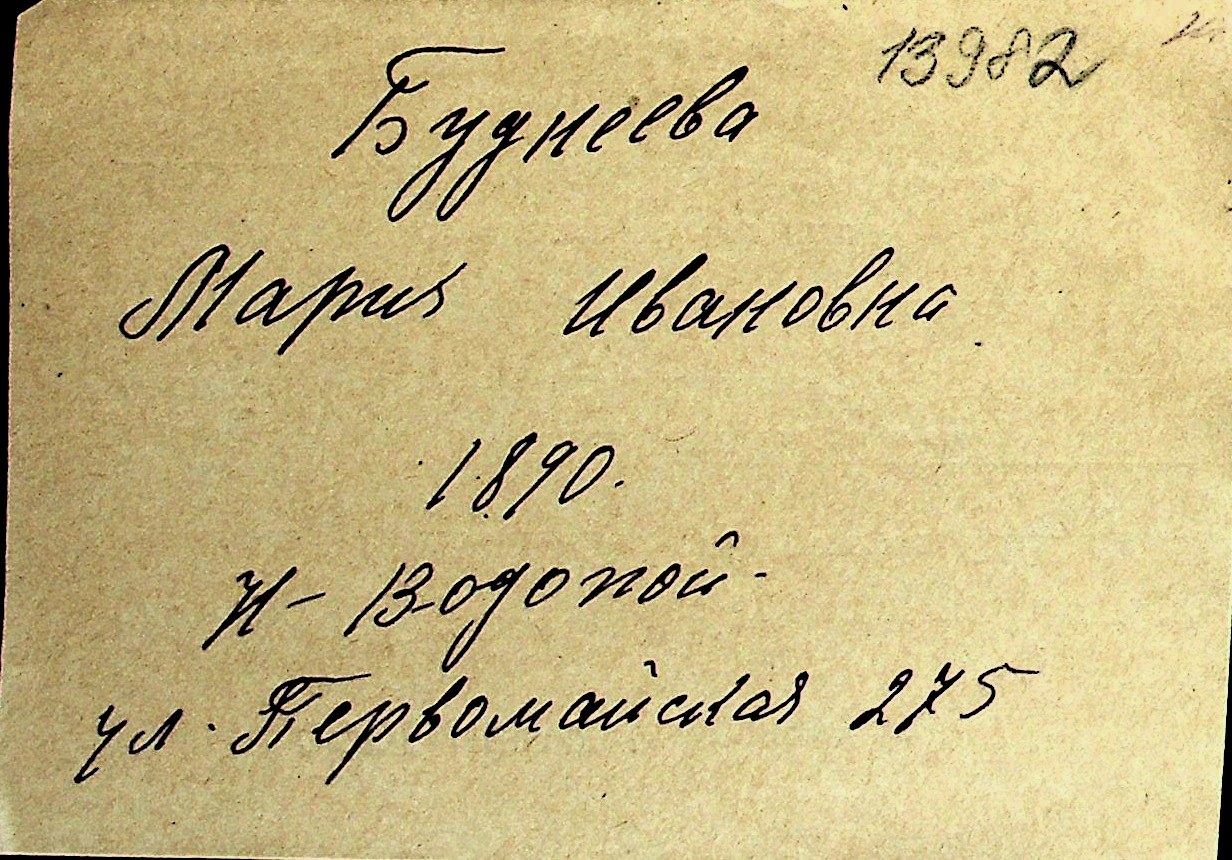 13982
Буднеева
Мария Ивановна
1890.
Н- Водопой.
ул. Первомайская 275